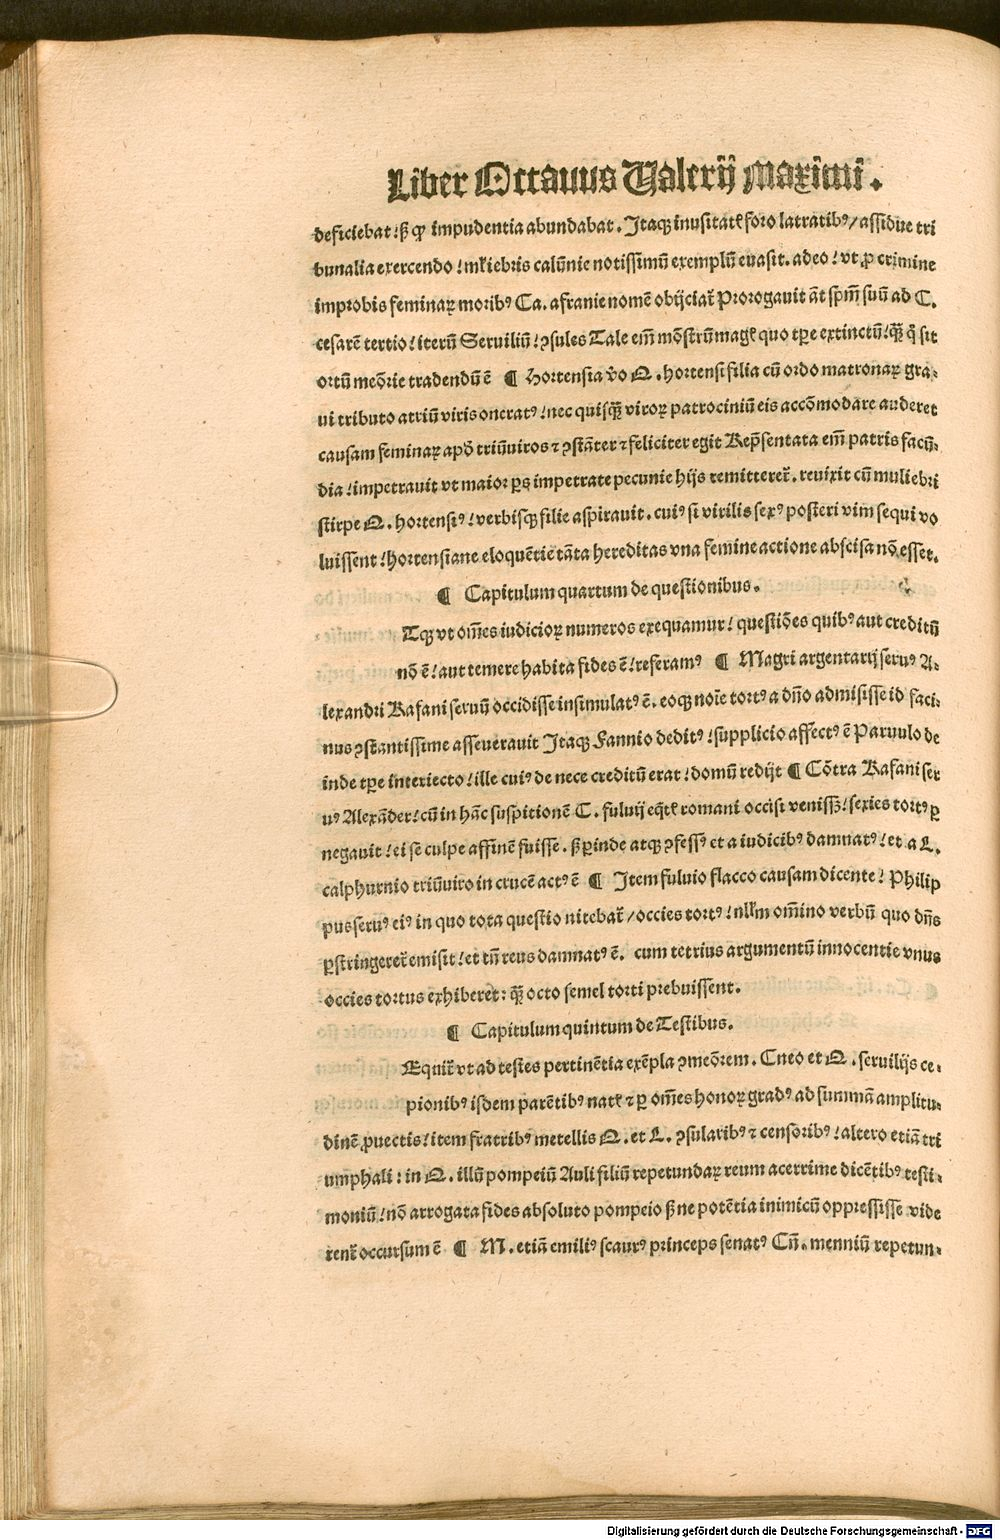 Liber Octauus Valerij Maximi.
deficiebat: sꝫ ꝙ impudentia abundabat. Itaqꝫ inusitatꝭ foro latratibꝰ/ assidue tri
bunalia exercendo! mľiebris calūnie notissimū exemplū euasit. adeo! vt ꝓ crimine
improbis feminaꝝ moribꝰ Ca. afranie nomē obijciat᷑ Prorogauit āt spm̄ suū ad C.
cesarē tertio! iterū Seruiliū! ꝯsules Tale em̄ mōstrū magꝭ quo tꝑe extinctū! qꝫ̄ q̊ sit
ortū meōrie tradendū ē ¶ Hortensia v̄o Q. hortensi filia cū ordo matronaꝝ gra-
ui tributo a triū viris oneratꝰ! nec quisqꝫ̄ viroꝝ patrociniū eis accōmodare auderet
causam feminaꝝ apd̄ triūuiros ⁊ ꝯstāter ⁊ feliciter egit Rep̄sentata em̄ patris facū-
dia! impetrauit vt maior ꝑs impetrate pecunie hijs remitteret᷑. reuixit cū muliebri
stirpe Q. hortensiꝰ! verbisqꝫ filie aspirauit. cuiꝰ si virilis sexꝰ posteri vim sequi vo
luissent! hortensiane eloquētie tāta hereditas vna femine actione abscisa nō esset.
¶ Capitulum quartum de questionibus.
Tqꝫ vt om̄es iudicioꝝ numeros exequamur! questiōes quibꝰ aut creditū
nō ē! aut temere habita fides ē! referamꝰ ¶ Magri argentarij seruꝰ A-
lexandri Kafani seruū occidisse insimulatꝰ ē. eoqꝫ noīe tortꝰ a dn̄o admisisse id faci-
nus ꝯstantissime asseuerauit Itaqꝫ Fannio deditꝰ! supplicio affectꝰ ē Paruulo de
inde tꝑe interiecto! ille cuiꝰ de nece creditū erat! domū redijt ¶ Cōtra Kafani ser
uꝰ Alexāder! cū in hāc suspitionē C. fuluij eqͥtꝭ romani occisi venissꝫ! sexies tortꝰ ꝑ
negauit! ei se culpe affinē fuisse. sꝫ ꝑinde atqꝫ ꝯfessꝰ et a iudicibꝰ damnatꝰ! et a L.
calphurnio triūuiro in crucē actꝰ ē ¶ Item fuluio flacco causam dicente! Philip
pus seruꝰ eiꝰ in quo tota questio nitebat᷑/ occies tortꝰ! nľlm om̄ino verbū quo dn̄s
ꝑstringeret᷑ emisit! et tn̄ reus damnatꝰ ē. cum tetrius argumentū innocentie vnus
occies tortus exhiberet: qꝫ̄ octo semel torti prebuissent.
¶ Capitulum quintum de Testibus.
Equit᷑ vt ad testes pertinētia exēpla ꝯmeōrem. Cneo et Q. seruilijs ce-
pionibꝰ isdem parētibꝰ natꝭ ⁊ ꝑ om̄es honoꝝ gradꝰ ad summā amplitu-
dinē ꝓuectis! item fratribꝰ metellis Q. et L. ꝯsularibꝰ ⁊ censoribꝰ! altero etiā tri
umphali: in Q. illū pompeiū Auli filiū repetundaꝝ reum acerrime dicētibꝰ testi-
moniū! nō arrogata fides absoluto pompeio sꝫ ne potētia inimicū oppressisse vide
rent᷑ occursum ē ¶ M. etiā emiliꝰ scaurꝰ princeps senatꝰ Cn̄. menniū repetun-
Digitalisierung gefördert durch die Deutsche Forschungsgemeinschaft - DFG